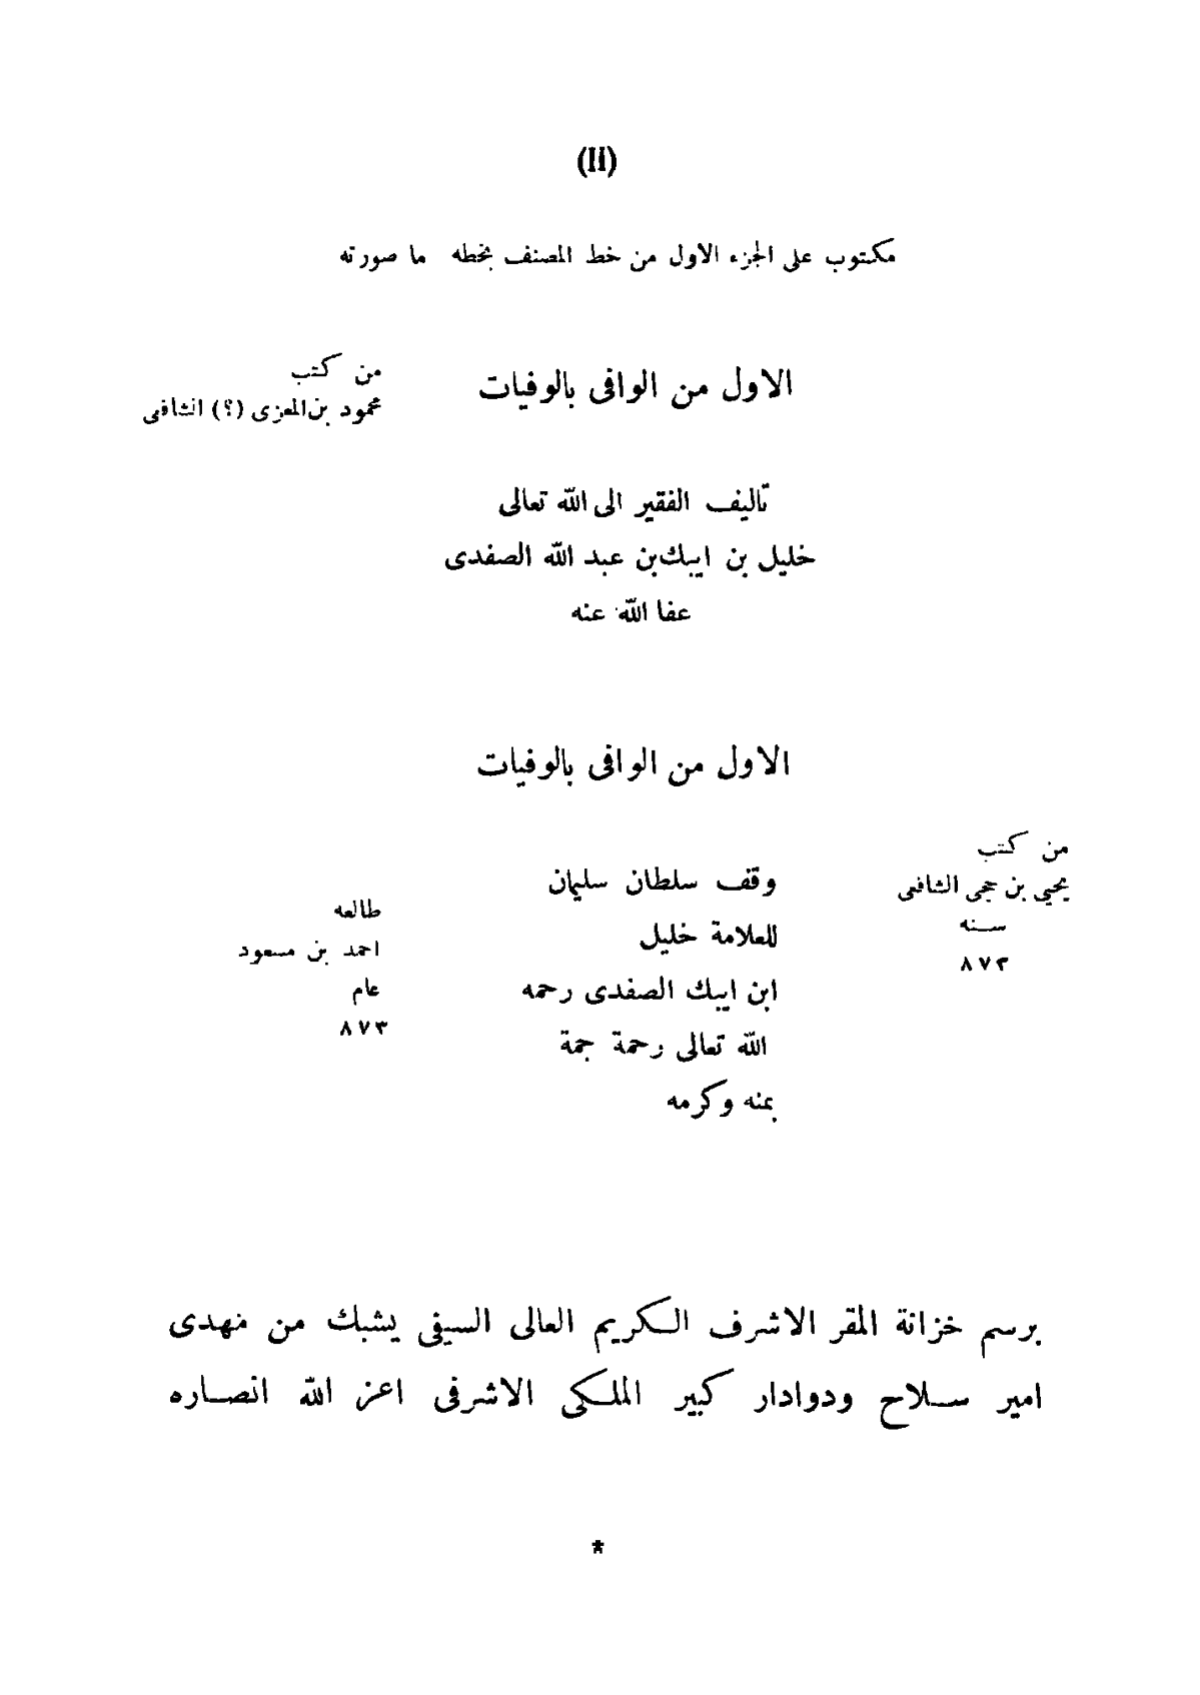 (Ii)
مكتوب على الجزء الاول من خط المصنف بخطه ما صورته
الاول من الوافى بالوفيات
من كتب
محمود بن المعزى (؟) الشافى
تاليف الفقير الى الله تعالى
خليل بن ايبك بن عبد الله الصفدى
عفا الله عنه
الاول من الوافى بالوفيات
من كتب
يحيى بن حجى الشافعى
سنه
٨٧٣
وقف سلطان سليمان
للعلامة خليل
ابن ايبك الصفدى رحمه
الله تعالى رحمة جمة
بمنه وكرمه
طالعه
احمد بن مسعود
عام
٨٧٣
برسم خزانة المقر الاشرف الكريم العالى السيفى يشبك من مهدى
امير سلاح ودوادار كبير الملكى الاشرفى اعز الله انصاره
*